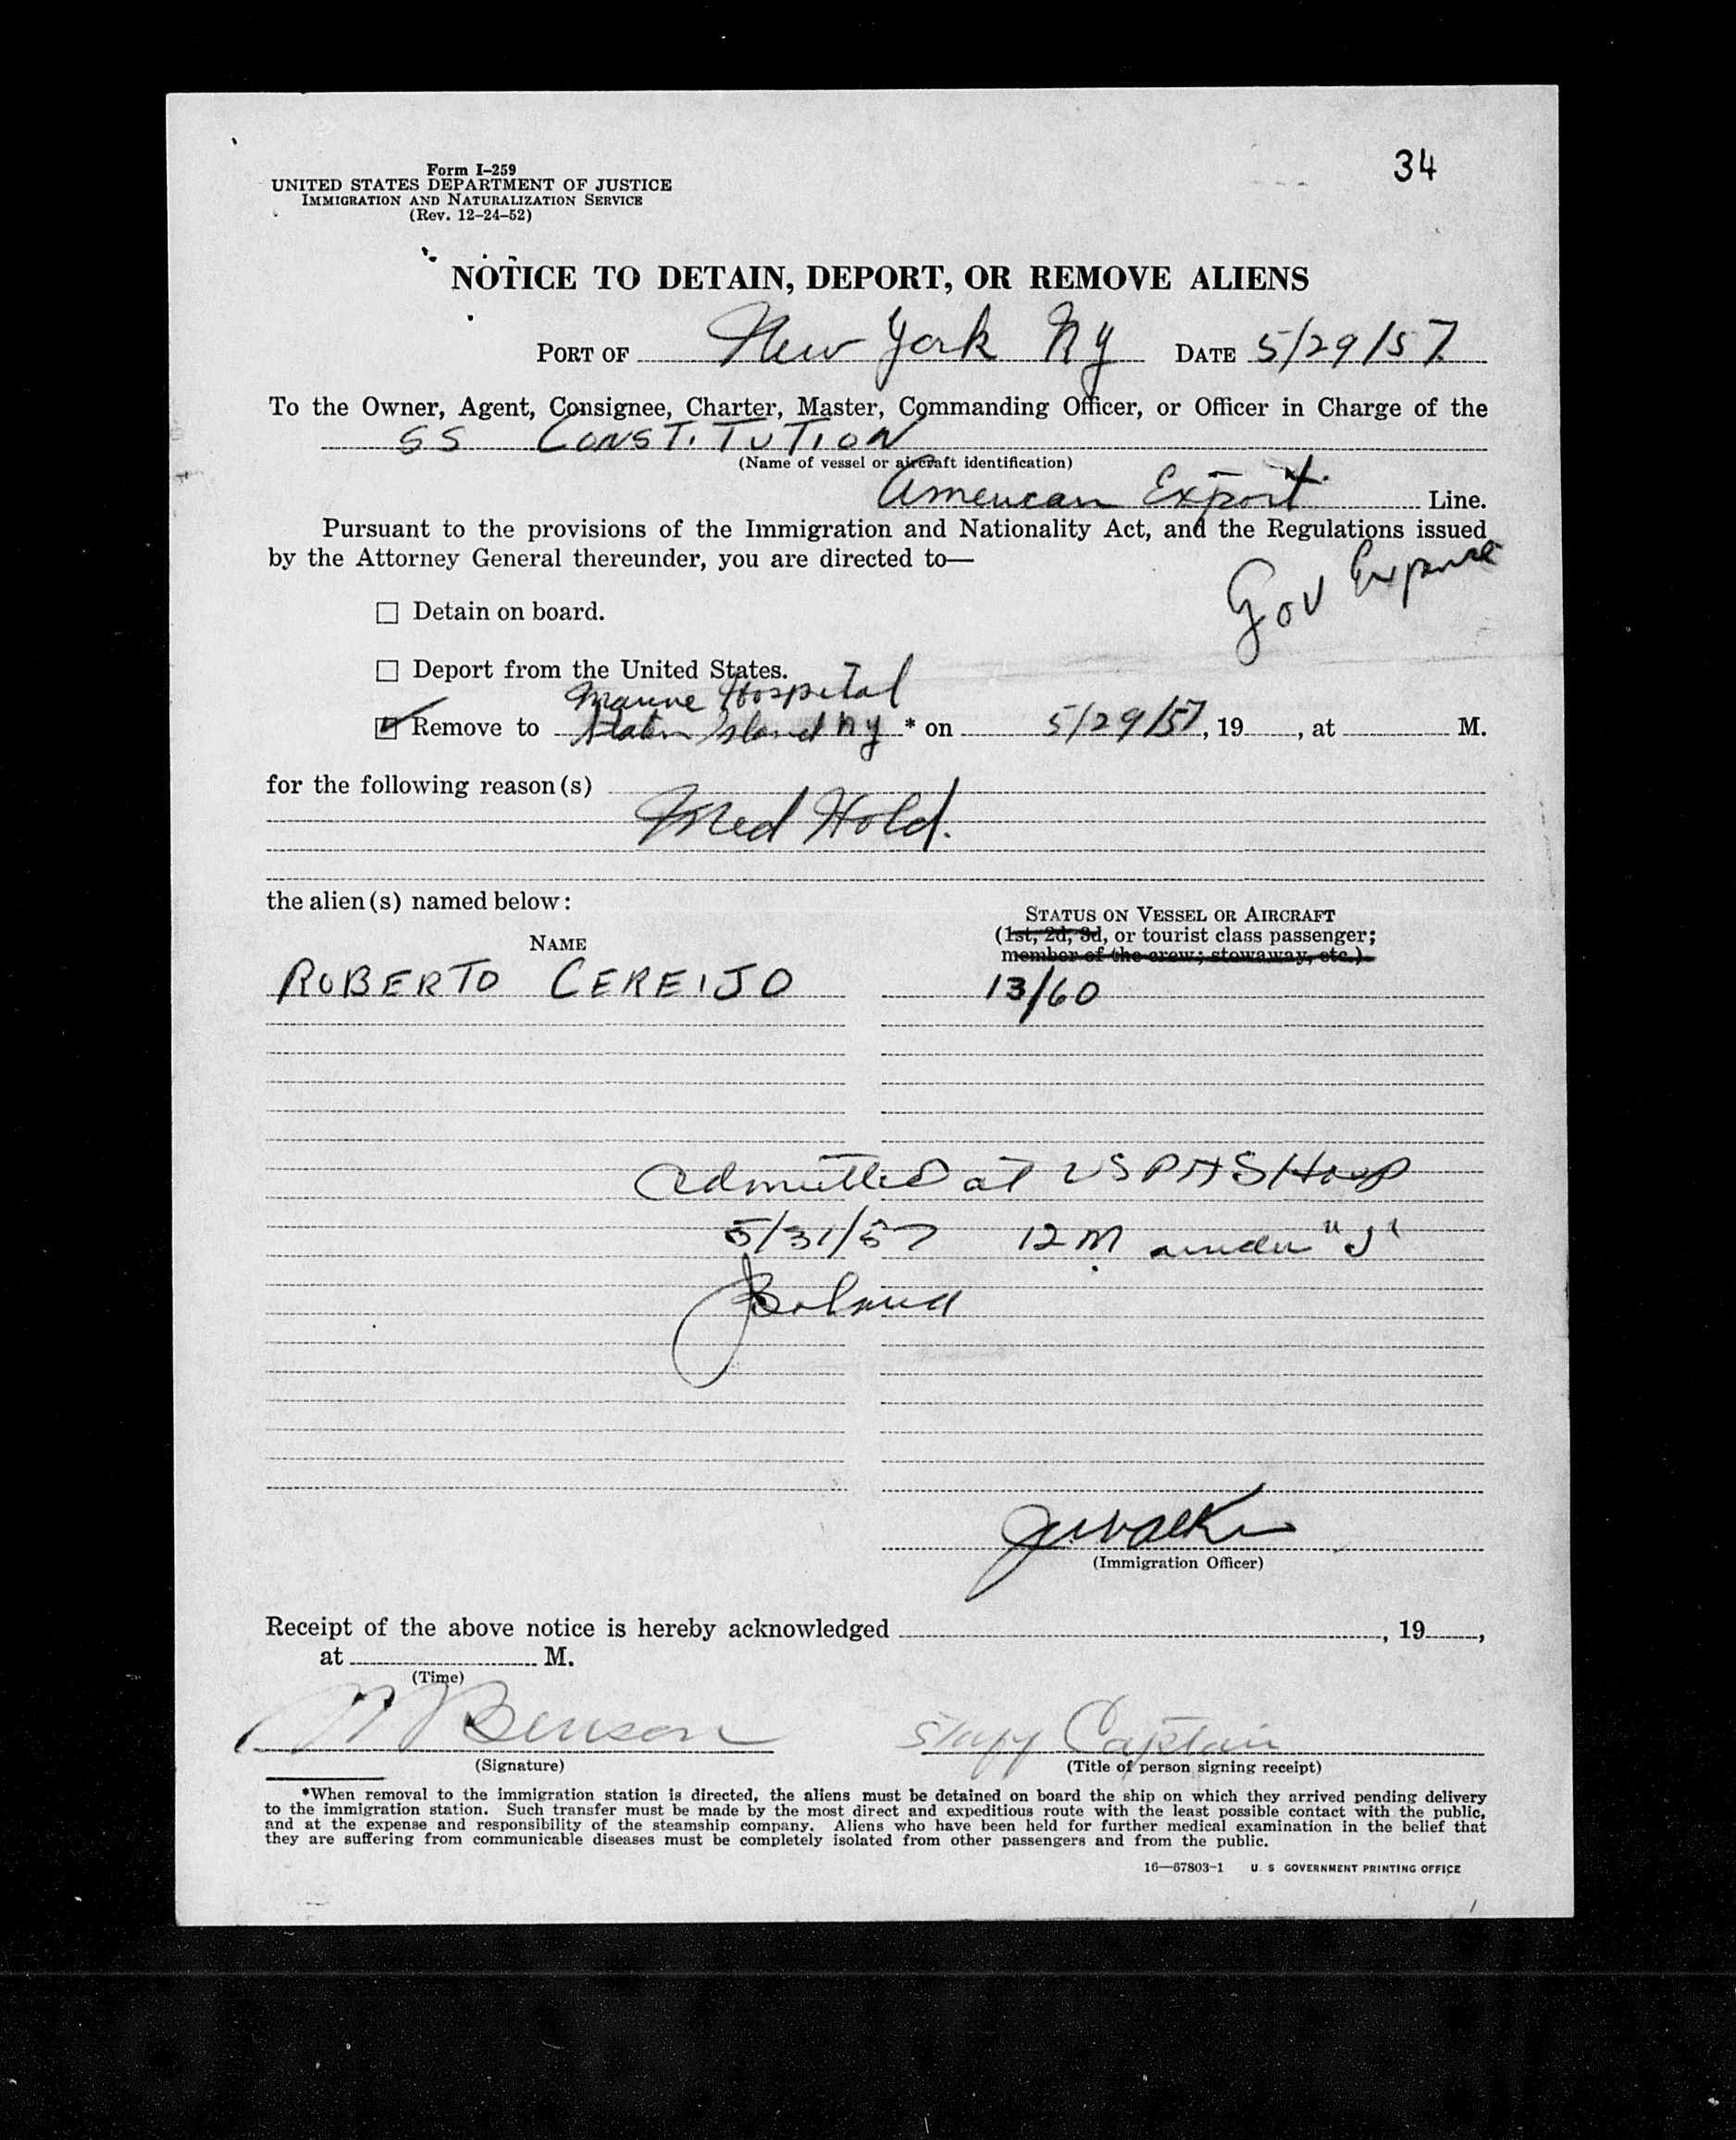 34
Form I-259
UNITED STATES DEPARTMENT OF JUSTICE
IMMIGRATION AND NATURALIZATION SERVICE
(Rev. 12-24-52)
NOTICE TO DETAIN, DEPORT, OR REMOVE ALIENS
PORT OF New York NY DATE 5/29/57
To the Owner, Agent, Consignee, Charter, Master, Commanding Officer, or Officer in Charge of the
SS CONSTITUTION
(Name of vessel or aircraft identification)
American Export Line.
Pursuant to the provisions of the Immigration and Nationality Act, and the Regulations issued
by the Attorney General thereunder, you are directed to—
Gov Expense
☐ Detain on board.
☐ Deport from the United States.
Marine Hospital
☑ Remove to Staten Island NY * on 5/29/57, 19 , at M.
for the following reason(s)
Med Hold.
the alien(s) named below:
STATUS ON VESSEL OR AIRCRAFT
NAME (1st, 2d, 3d, or tourist class passenger;
member of the crew; stowaway, etc.)
ROBERTO CEREIJO 13/60
Admitted at USPHS Hosp
5/31/57 12 M under "J"
(Immigration Officer)
Receipt of the above notice is hereby acknowledged , 19 ,
at M.
(Time)
Benson Staff Captain
(Signature) (Title of person signing receipt)
*When removal to the immigration station is directed, the aliens must be detained on board the ship on which they arrived pending delivery
to the immigration station. Such transfer must be made by the most direct and expeditious route with the least possible contact with the public,
and at the expense and responsibility of the steamship company. Aliens who have been held for further medical examination in the belief that
they are suffering from communicable diseases must be completely isolated from other passengers and from the public.
16—67803-1 U S GOVERNMENT PRINTING OFFICE